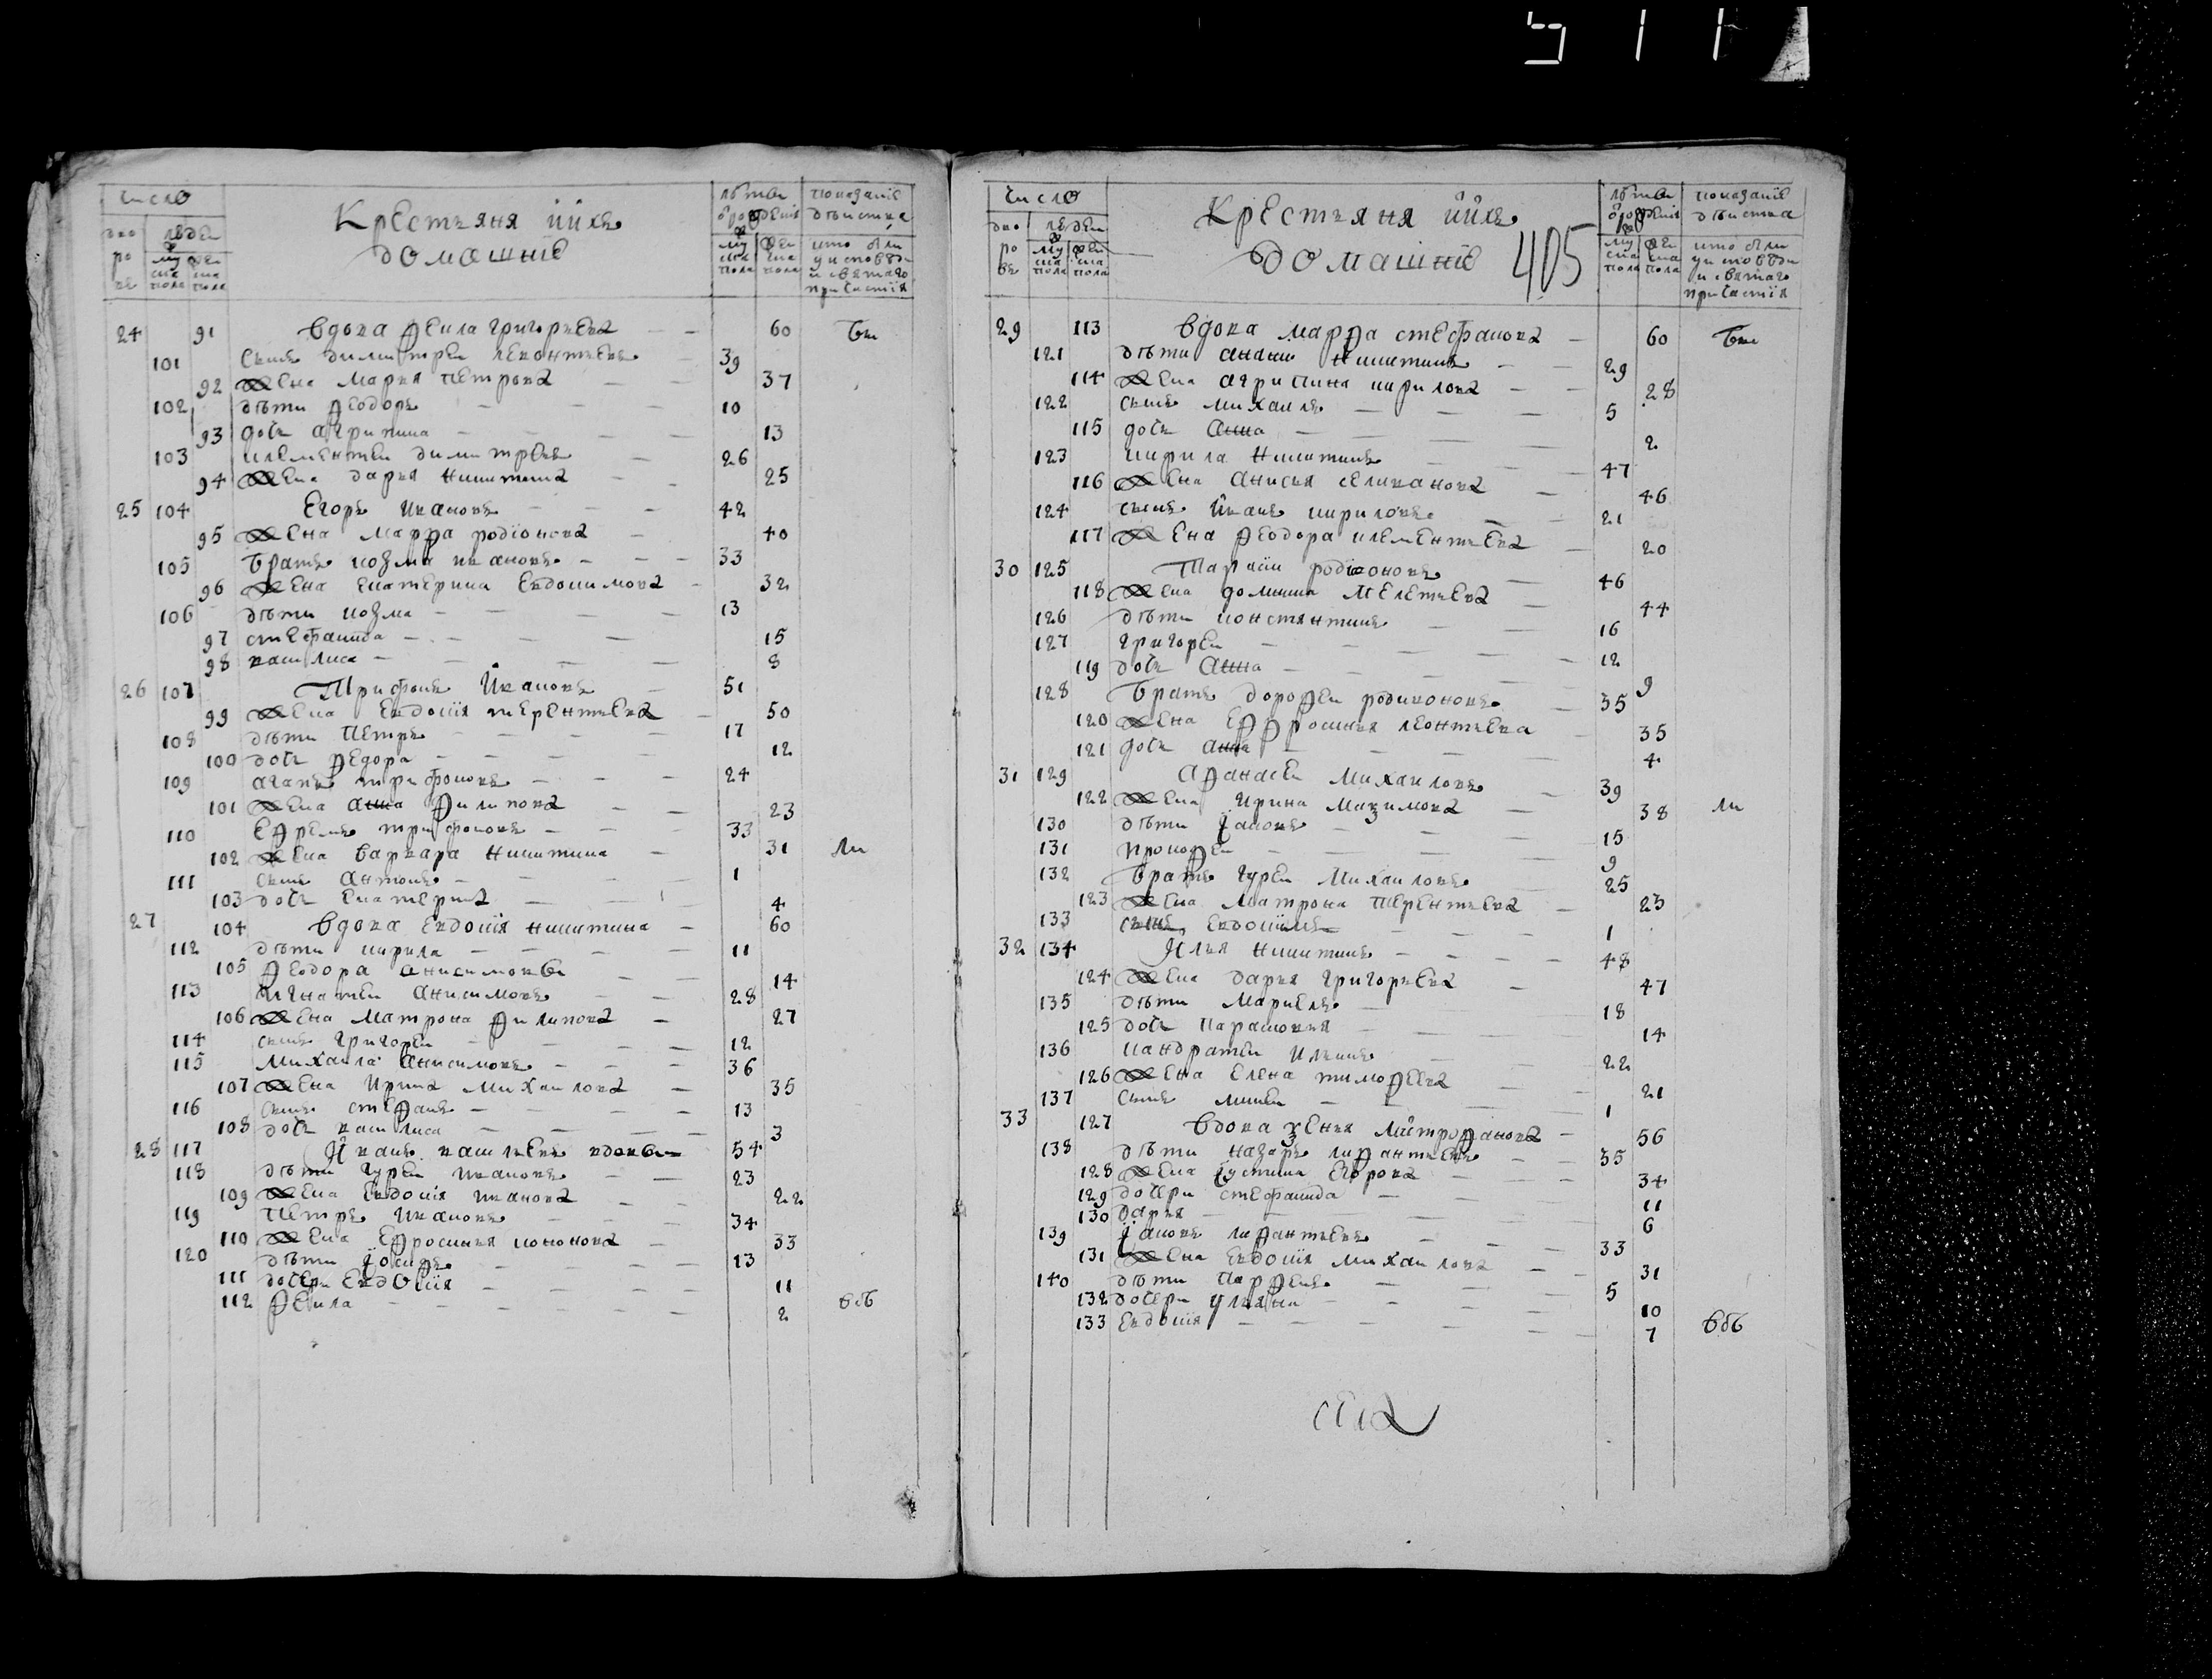 511
число
дворовъ
людей
мужска пола
женска пола
Крестьяня ийхъ
домашнїе
лѣтъ от рожденїя
мужска пола
женска пола
показанїе дѣиства
кто были у исповѣди и святаго причастїя
24 91 вдова Ѳекла григорьева — — 60 бы
101 сынъ димитреи левонтьевъ — 39
92 жена Марья петрова — — 37
102 дѣти Ѳеодоръ — — — 10
93 дочь агрипина — — — — 13
103 клементеи димитревъ — 26
94 жена дарья никитина — — 25
25 104 Егоръ ивановъ — — — 42
95 жена Марѳа родїонова — 40
105 братъ козма ивановъ — — — 33
96 жена екатерина Евдокимова — 32
106 дѣти козма — — — — 13
97 стефанида — — — — 15
98 василиса — — — — 8
26 107 Трифонъ Ивановъ — 51
99 жена Евдокїя терентьева — 50
108 дѣти Петръ — — — — 17
100 дочь Ѳедора — — — — 12
109 агапъ трифоновъ — — — 24
101 жена анна Филипова — — 23
110 Еѳремъ трифоновъ — — — 33
102 жена варвара никитина — — 31 ли
111 сынъ антонъ — — — — 1
103 дочь екатерина — — — 4
27 104 вдова Евдокїя никитина — 60
112 дѣти кирила — — — — 11
105 Ѳеодора анисимовы — — 14
113 игнатеи анисимовъ — — 28
106 жена Матрона Филипова — 27
114 сынъ григореи — — — — 12
115 Михаила анисимовъ — — — 36
107 жена Ирина Михаилова — 35
116 сынъ стеѳанъ — — — — 13
108 дочь василиса — — — — 3
28 117 Иванъ васильевъ вдовы 54
118 дѣти гурен ивановъ — — 23
109 жена Евдокїя иванова — — 22
119 Петръ ивановъ — — — 34
110 жена Еѳросинья кононова — 33
120 дѣти їосиѳъ — — — — 13
111 дочери Евдокїя — — — — 11
112 Ѳекла — — — — 2 всѣ
число
дворовъ
людей
мужска пола
женска пола
Крестьяня ийхъ
домашнїе
405
лѣтъ от рожденїя
мужска пола
женска пола
показанїе дѣиства
кто были у исповѣди и святаго причастїя
29 113 вдова марѳа стефанова — 60 бы
121 дѣти ананїи никитинъ — — 29
114 жена агрипина кирилова — — 28
122 сынъ михаилъ — — — — 5
115 дочь анна — — — — 2
123 кирила никитинъ — — 47
116 жена анисья селиванова — 46
124 сынъ иванъ кириловъ — — 21
117 жена Ѳеодора клементьева — 20
30 125 Тарасїи родїоновъ — 46
118 жена домника Мелетьева — 44
126 дѣти констянтинъ — — 16
127 григореи — — — — 12
119 дочь анна — — — — 9
128 братъ дороѳеи родивоновъ — 35
120 жена Еѳросинья леонтьева 35
121 дочь анна — — — — 4
31 129 аѳанасеи Михаиловъ — 39
122 жена Ирина Маѯимова — 38 ли
130 дѣти їаковъ — — — — 15
131 прокоѳеи — — — — 9
132 братъ гурен Михаиловъ 25
123 жена Матрона Терентьева — 23
133 сынъ Евдокимъ — — — 1
32 134 Илья никитинъ — — — — 48
124 жена дарья григорьева — 47
135 дѣти маркелъ — — — 18
125 дочь Парасковья — — — 14
136 кандратеи ильинъ — — 22
126 жена елена тимоѳеева — — 21
137 сынъ михеи — — — — 1
33 127 вдова ѯенья Митроѳанова — 56
138 дѣти назаръ лиѳантьевъ — — 35
128 жена їустина Егорова — — — 34
129 дочери стефанида — — — 11
130 дарья — — — — 6
139 їаковъ лиѳантьевъ — — — 33
131 жена Евдокїя михаилова — — 31
140 дѣти парѳенъ — — — — 5
132 дочери ульяна — — — — 10
133 Евдокїя — — — — 7 всѣ
села